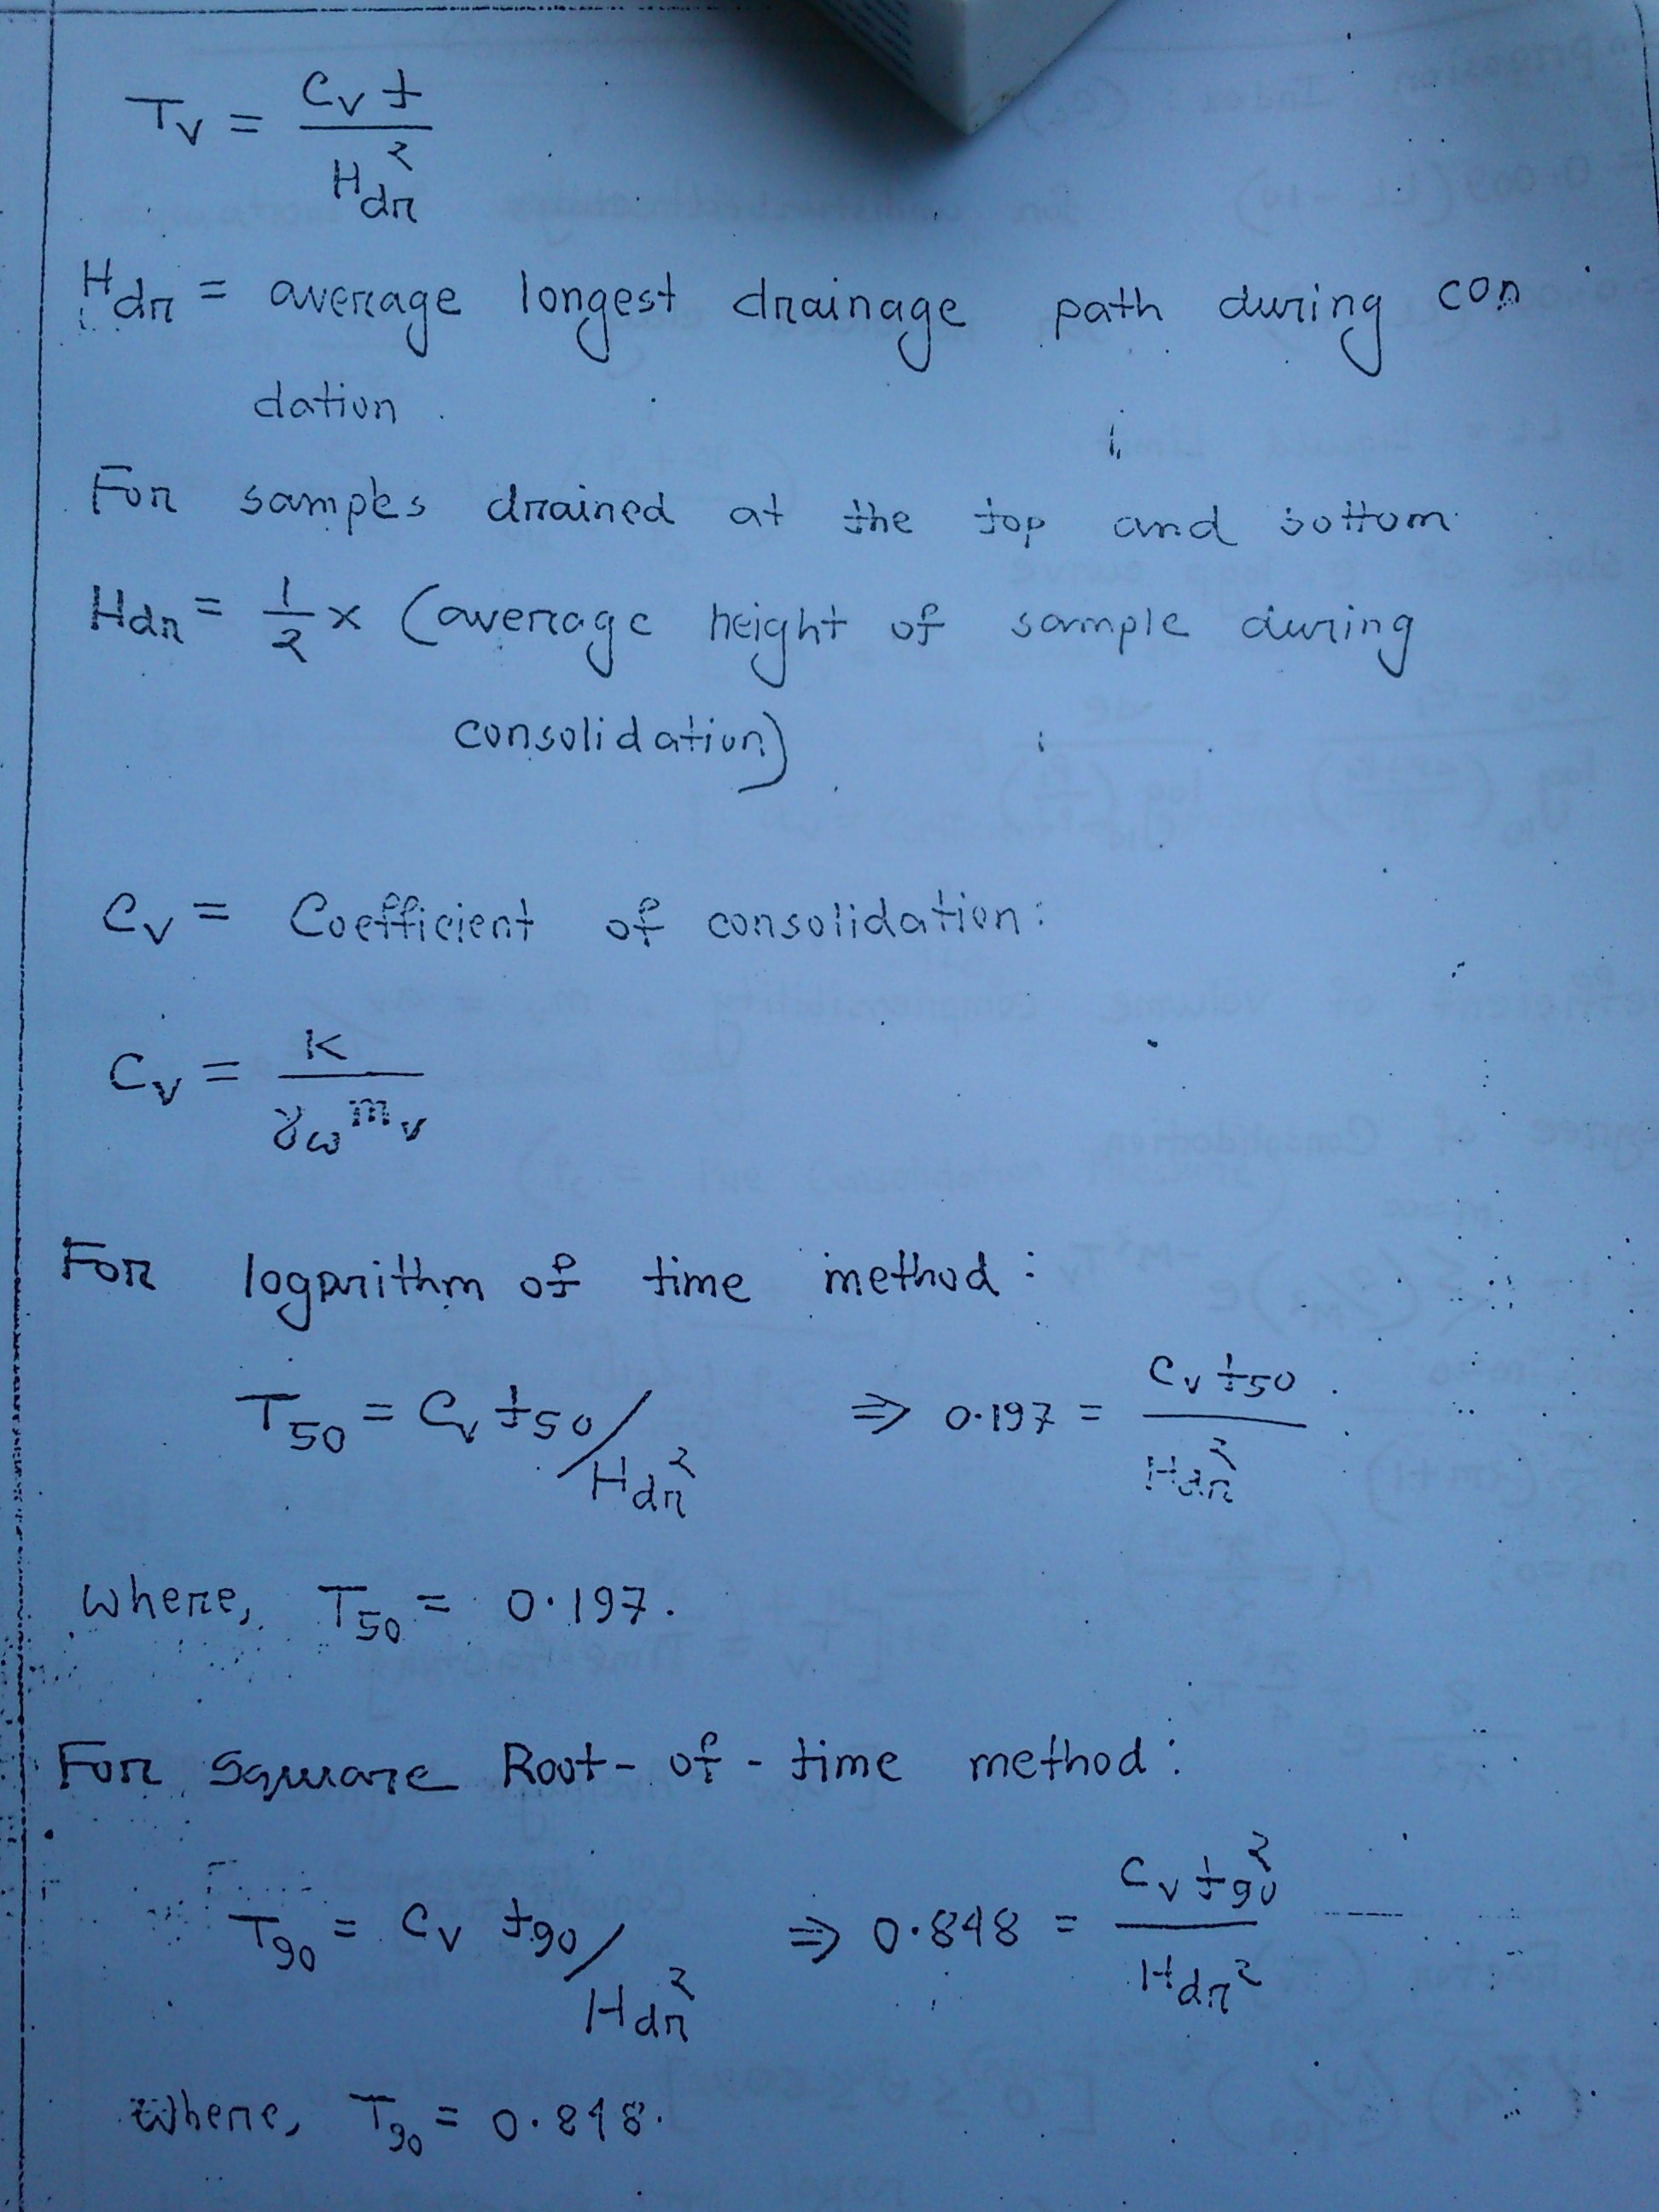 Tv = Cv t / Hdr²
Hdr = average longest drainage path during con
dation.
For samples drained at the top and bottom
Hdr = 1/2 × (average height of sample during
consolidation)
Cv = Coefficient of consolidation:
Cv = K / γω mv
For logarithm of time method:
T50 = Cv t50 / Hdr² ⇒ 0.197 = Cv t50 / Hdr²
where, T50 = 0.197.
For Square Root-of-time method:
T90 = Cv t90 / Hdr² ⇒ 0.848 = Cv t90² / Hdr²
where, T90 = 0.848.